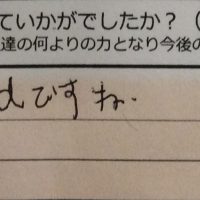 ていかがでしたか？（
達の何よりの力となり今後の
ですね.